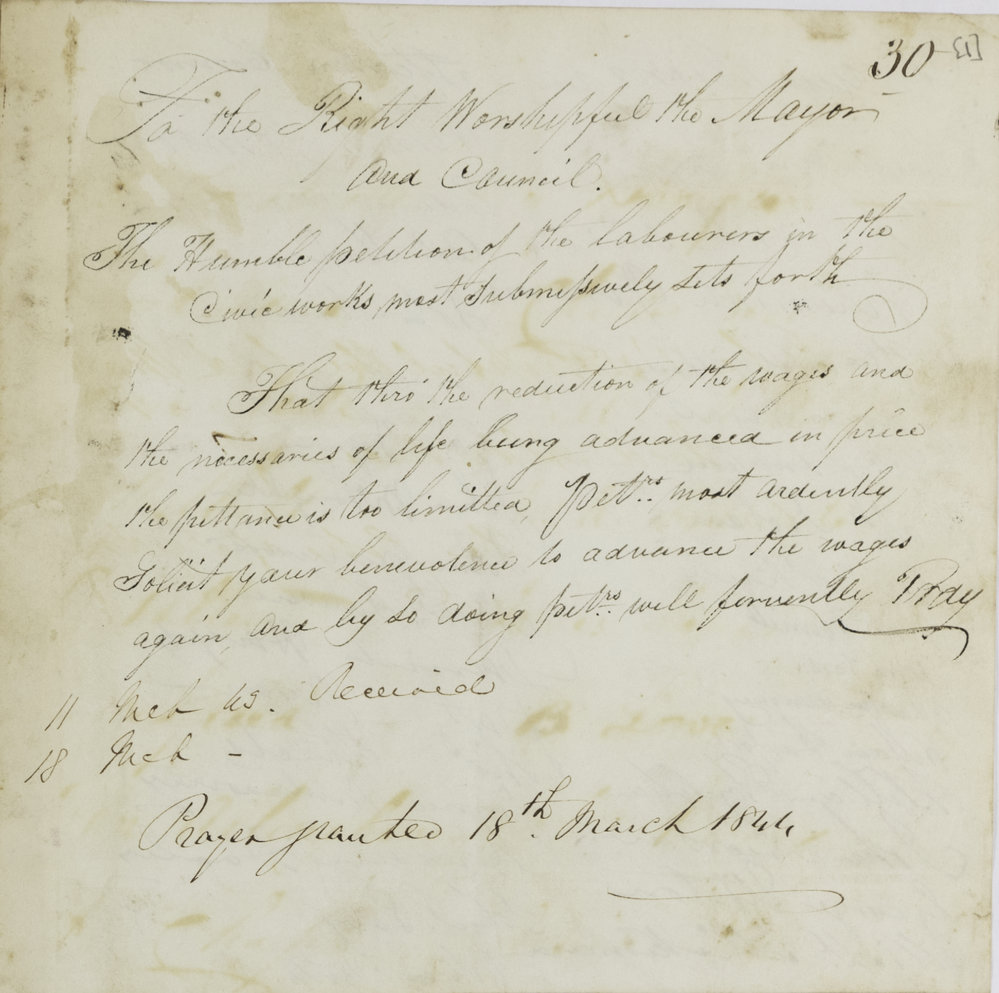 30 [13]
To the Right Worshipful the Mayor
and Council.
The Humble petition of the labourers in the
Civic works, most Submissively Sets forth
That thro' the reduction of the wages and
the necessaries of life being advanced in price
the pittance is too limitted, Petrs. most ardently
Solicit your benevolence to advance the wages
again, and by So doing petrs. will fervently Pray
11 Mch 43. Received
18 Mch -
Prayer granted 18th. March 1844